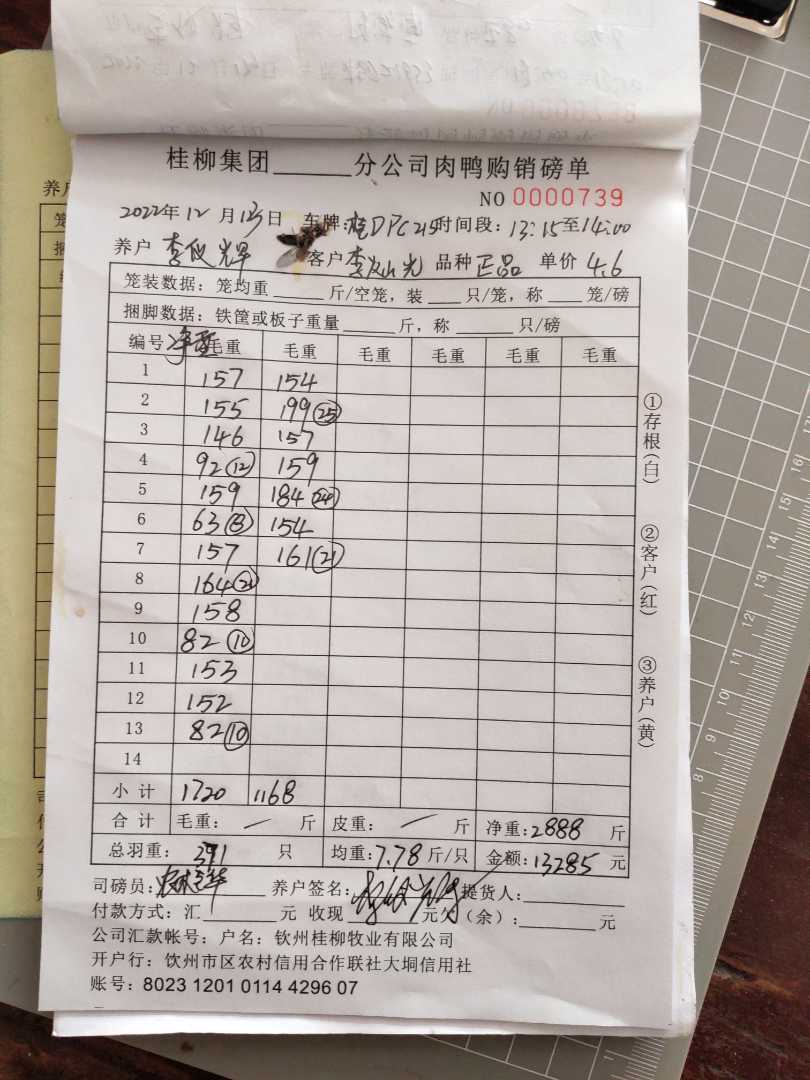 桂柳集团______分公司肉鸭购销磅单
NO 0000739
2022年12月13日 车牌:桂DPC215 时间段:13:15至14:00
养户 李 辉 客户 李 光 品种 正品 单价 4.6
笼装数据:笼均重____斤/空笼,装___只/笼,称___笼/磅
捆脚数据:铁筐或板子重量_____斤,称_____只/磅
编号 净重 毛重 毛重 毛重 毛重 毛重 毛重
1 157 154
2 155 199 (25)
3 146 157
4 92 (12) 159
5 159 184 (24)
6 63 (8) 154
7 157 161 (21)
8 164 (21)
9 158
10 82 (10)
11 153
12 152
13 82 (10)
14
小计 1720 1168
合计 毛重: / 斤 皮重: / 斤 净重:2888 斤
总羽重: 371 只 均重:7.78 斤/只 金额:13285 元
司磅员: 养户签名: 提货人:
付款方式:汇______元 收现______元欠(余):______元
公司汇款帐号:户名:钦州桂柳牧业有限公司
开户行:钦州市区农村信用合作联社大垌信用社
账号:8023 1201 0114 4296 07
①存根(白)
②客户(红)
③养户(黄)